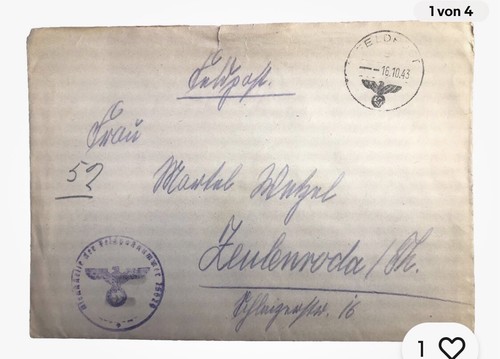 1 von 4
Feldpost.
FELDPOST
16.10.43
Frau
52
Martel Wetzel
Zeulenroda / Th.
Schleizerstr. 16
Dienststelle der Feldpostnummer
1